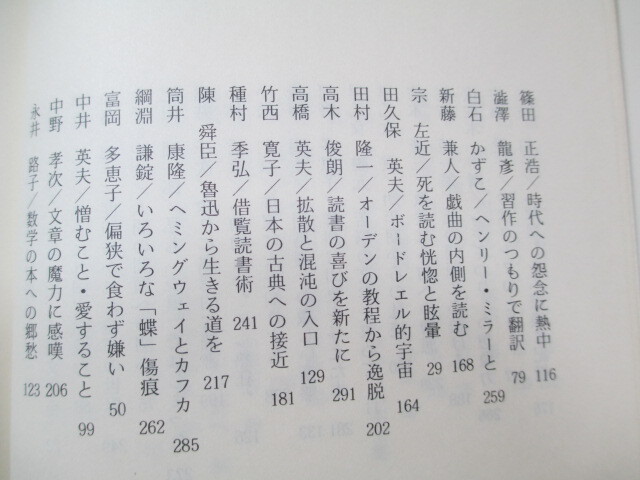 篠田 正浩／時代への怨念に熱中 116
澁澤 龍彥／習作のつもりで翻訳 79
白石 かずこ／ヘンリー・ミラーと 259
新藤 兼人／戯曲の内側を読む 168
宗 左近／死を読む恍惚と眩暈 29
田久保 英夫／ボードレエル的宇宙 164
田村 隆一／オーデンの教程から逸脱 202
高木 俊朗／読書の喜びを新たに 291
高橋 英夫／拡散と混沌の入口 129
竹西 寛子／日本の古典への接近 181
種村 季弘／借覧読書術 241
陳 舜臣／魯迅から生きる道を 217
筒井 康隆／ヘミングウェイとカフカ 285
綱淵 謙錠／いろいろな「蝶」傷痕 262
富岡 多恵子／偏狭で食わず嫌い 50
中井 英夫／憎むこと・愛すること 99
中野 孝次／文章の魔力に感嘆 206
永井 路子／数学の本への郷愁 123